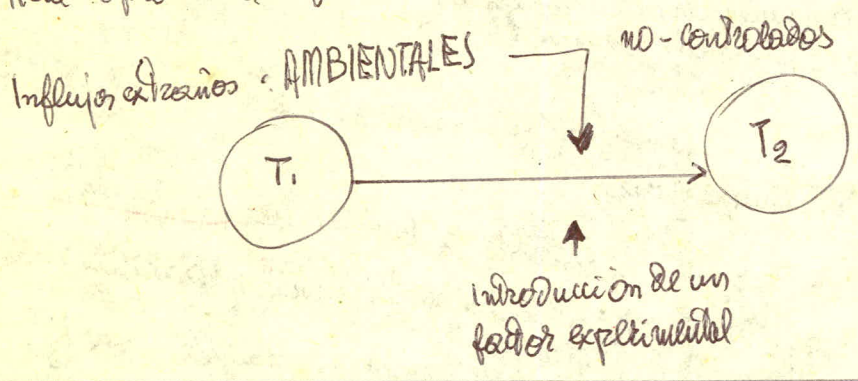 Influjos extraños : AMBIENTALES
no-controlados
T1
T2
Introducción de un
factor experimental